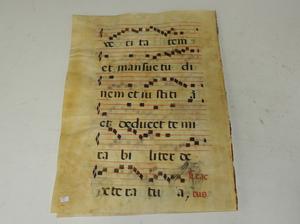 ve ri ta tem
et man sue tu di
nem et iu sti ti ā
et de du cet te mi
ra bi li ter de
x te ra tu a, Trac
tus.